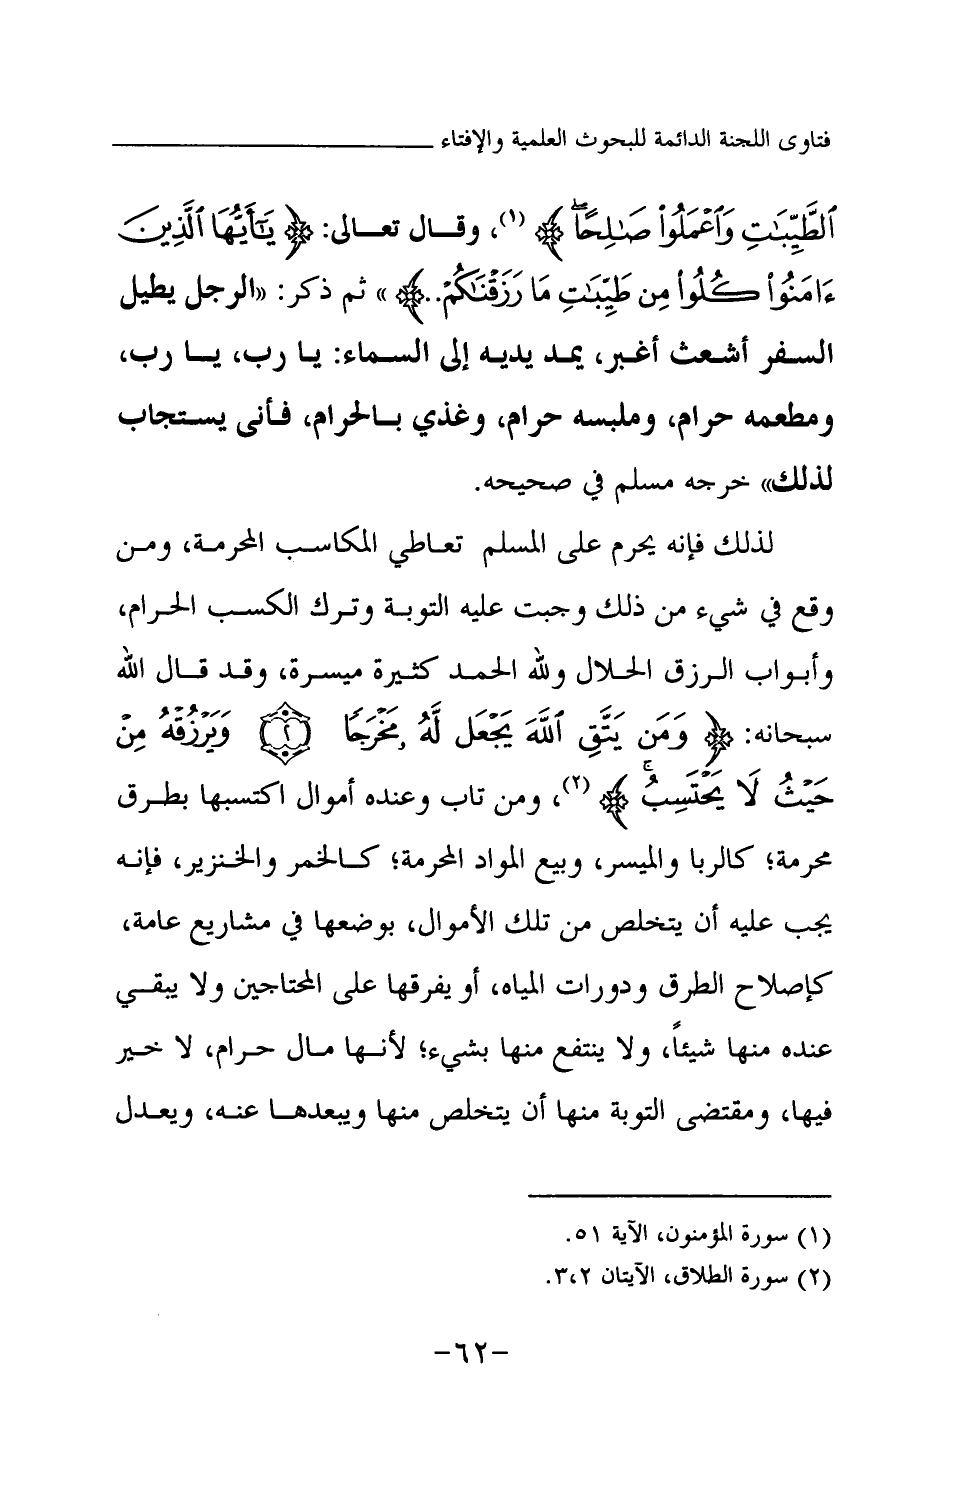 فتاوى اللجنة الدائمة للبحوث العلمية والإفتاء
ٱلطَّيِّبَٰتِ وَٱعْمَلُوا۟ صَٰلِحًا ۖ ﴾ (١)، وقال تعالى: ﴿ يَٰٓأَيُّهَا ٱلَّذِينَ
ءَامَنُوا۟ كُلُوا۟ مِن طَيِّبَٰتِ مَا رَزَقْنَٰكُمْ..﴾ » ثم ذكر: «الرجل يطيل
السفر أشعث أغبر، يمد يديه إلى السماء: يا رب، يا رب،
ومطعمه حرام، وملبسه حرام، وغذي بالحرام، فأنى يستجاب
لذلك» خرجه مسلم في صحيحه.
لذلك فإنه يحرم على المسلم تعاطي المكاسب المحرمة، ومن
وقع في شيء من ذلك وجبت عليه التوبة وترك الكسب الحرام،
وأبواب الرزق الحلال ولله الحمد كثيرة ميسرة، وقد قال الله
سبحانه: ﴿ وَمَن يَتَّقِ ٱللَّهَ يَجْعَل لَّهُۥ مَخْرَجًا ٢ وَيَرْزُقْهُ مِنْ
حَيْثُ لَا يَحْتَسِبُ ۚ ﴾ (٢)، ومن تاب وعنده أموال اكتسبها بطرق
محرمة؛ كالربا والميسر، وبيع المواد المحرمة؛ كالخمر والخنزير، فإنه
يجب عليه أن يتخلص من تلك الأموال، بوضعها في مشاريع عامة،
كإصلاح الطرق ودورات المياه، أو يفرقها على المحتاجين ولا يبقي
عنده منها شيئاً، ولا ينتفع منها بشيء؛ لأنها مال حرام، لا خير
فيها، ومقتضى التوبة منها أن يتخلص منها ويبعدها عنه، ويعدل
(١) سورة المؤمنون، الآية ٥١.
(٢) سورة الطلاق، الآيتان ٣،٢.
-٦٢-